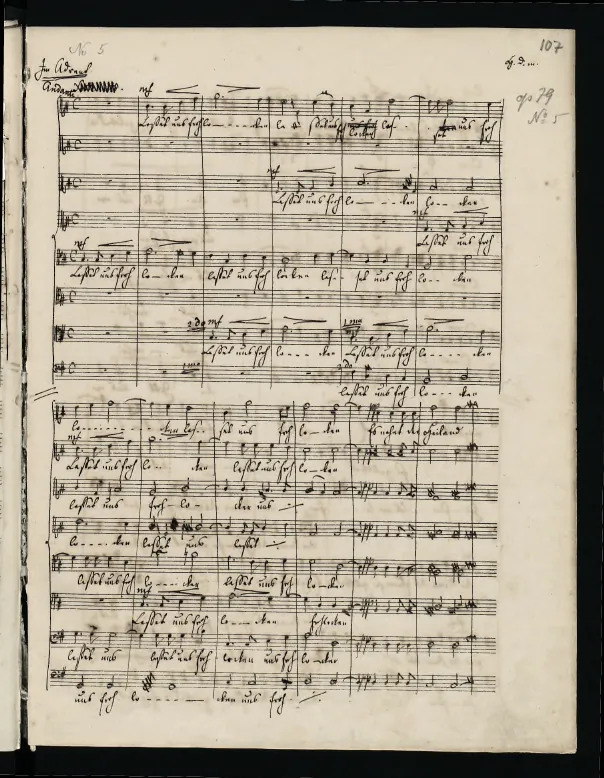 No 5
107
Im Advent
op. 79
No 5
Andante
mf
Lasset uns froh lo - - - - cken lo
mf
Lasset uns froh lo - - - cken lo - cken
mf
Lasset uns froh
mf
Lasset uns froh lo - cken lasset uns froh locken las - set uns froh lo - - cken
2do mf
1mo
Lasset uns froh lo - - - cken Lasset uns froh lo - - - cken
1mo
2do
lasset uns froh lo - - cken
lo - - - - - - - cken las - set uns froh lo - cken Es nahet der Heiland
mf
Lasset uns froh lo - - cken lasset uns froh lo - cken
lasset uns froh - lo - cken uns
lo - - - cken lasset uns lasset
lasset uns froh lo - - - cken lasset uns froh lo - cken
mf
Lasset uns froh lo - - - cken frohlocken
lasset uns lasset uns froh locken uns froh lo - cken
uns froh lo - - - - - cken uns froh -